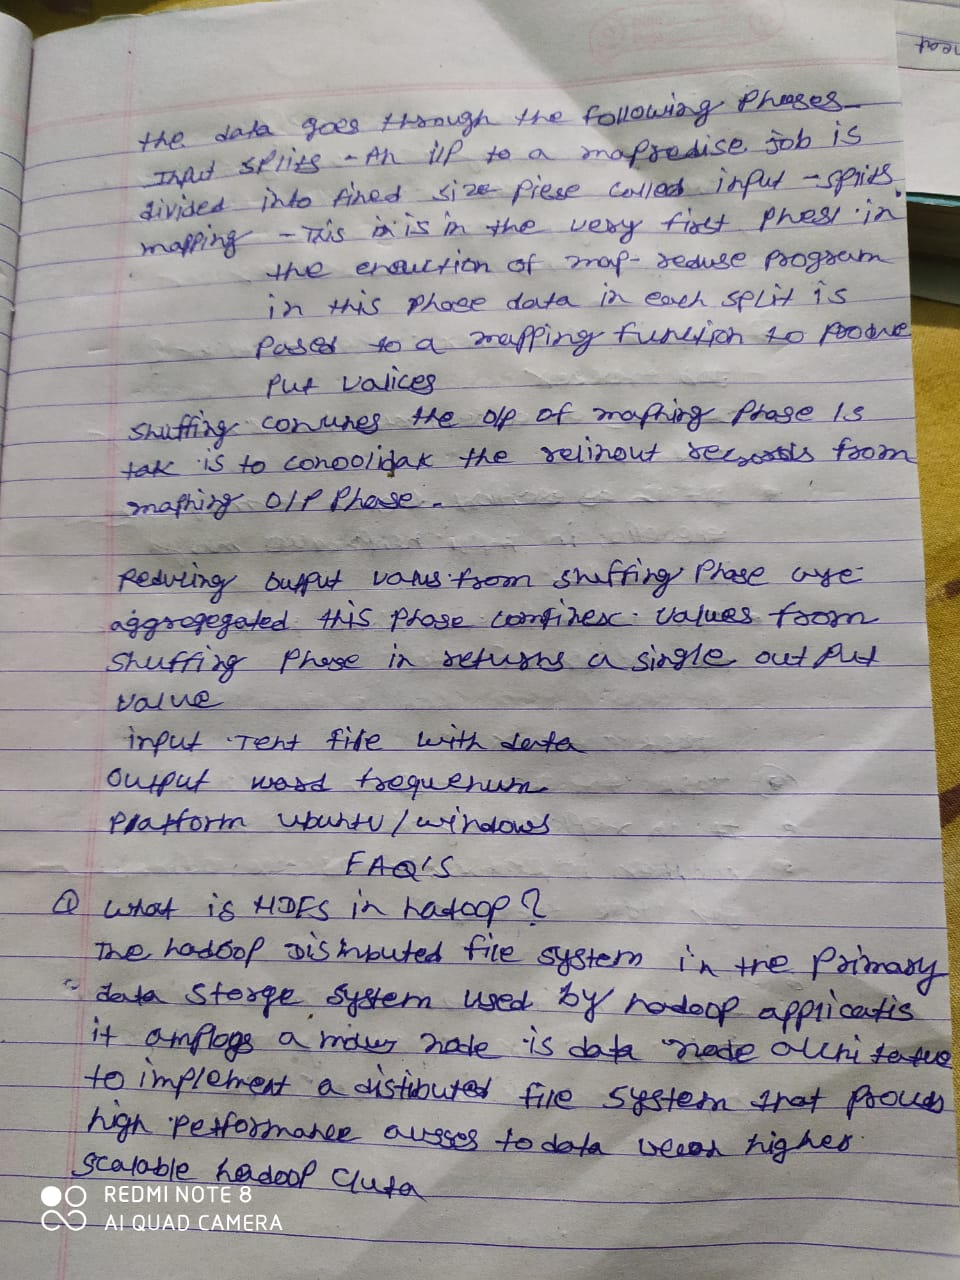 the data goes through the following Phases
Input splits - An I/P to a mapredise job is
divided into fined size piese called input - splits.
mapping - This is in the very first phesl in
the enauction of map-reduse program
in this phace data in each split is
pased to a mapping function to produe
put valices
shuffing conumes the o/p of maphing phase is
tak is to conoolidak the relinout records from
maphing O/P Phase.
Reduring output valus from sheffing Phase aye
aggregegated this phase comfinex values from
Shuffing Phase in returns a single out put
value
input Tent file with data
output word frequenum
Platform ubuntu/windows
FAQ'S
Q What is HDFS in hadoop?
The hadoop Distributed file system in the primary
data storge system used by hadoop applicatis
it amplogs a node is data node
to implement a distibuted file system that prouds
high performance ausses to data higher
scalable hadoop Cluta
REDMI NOTE 8
AI QUAD CAMERA